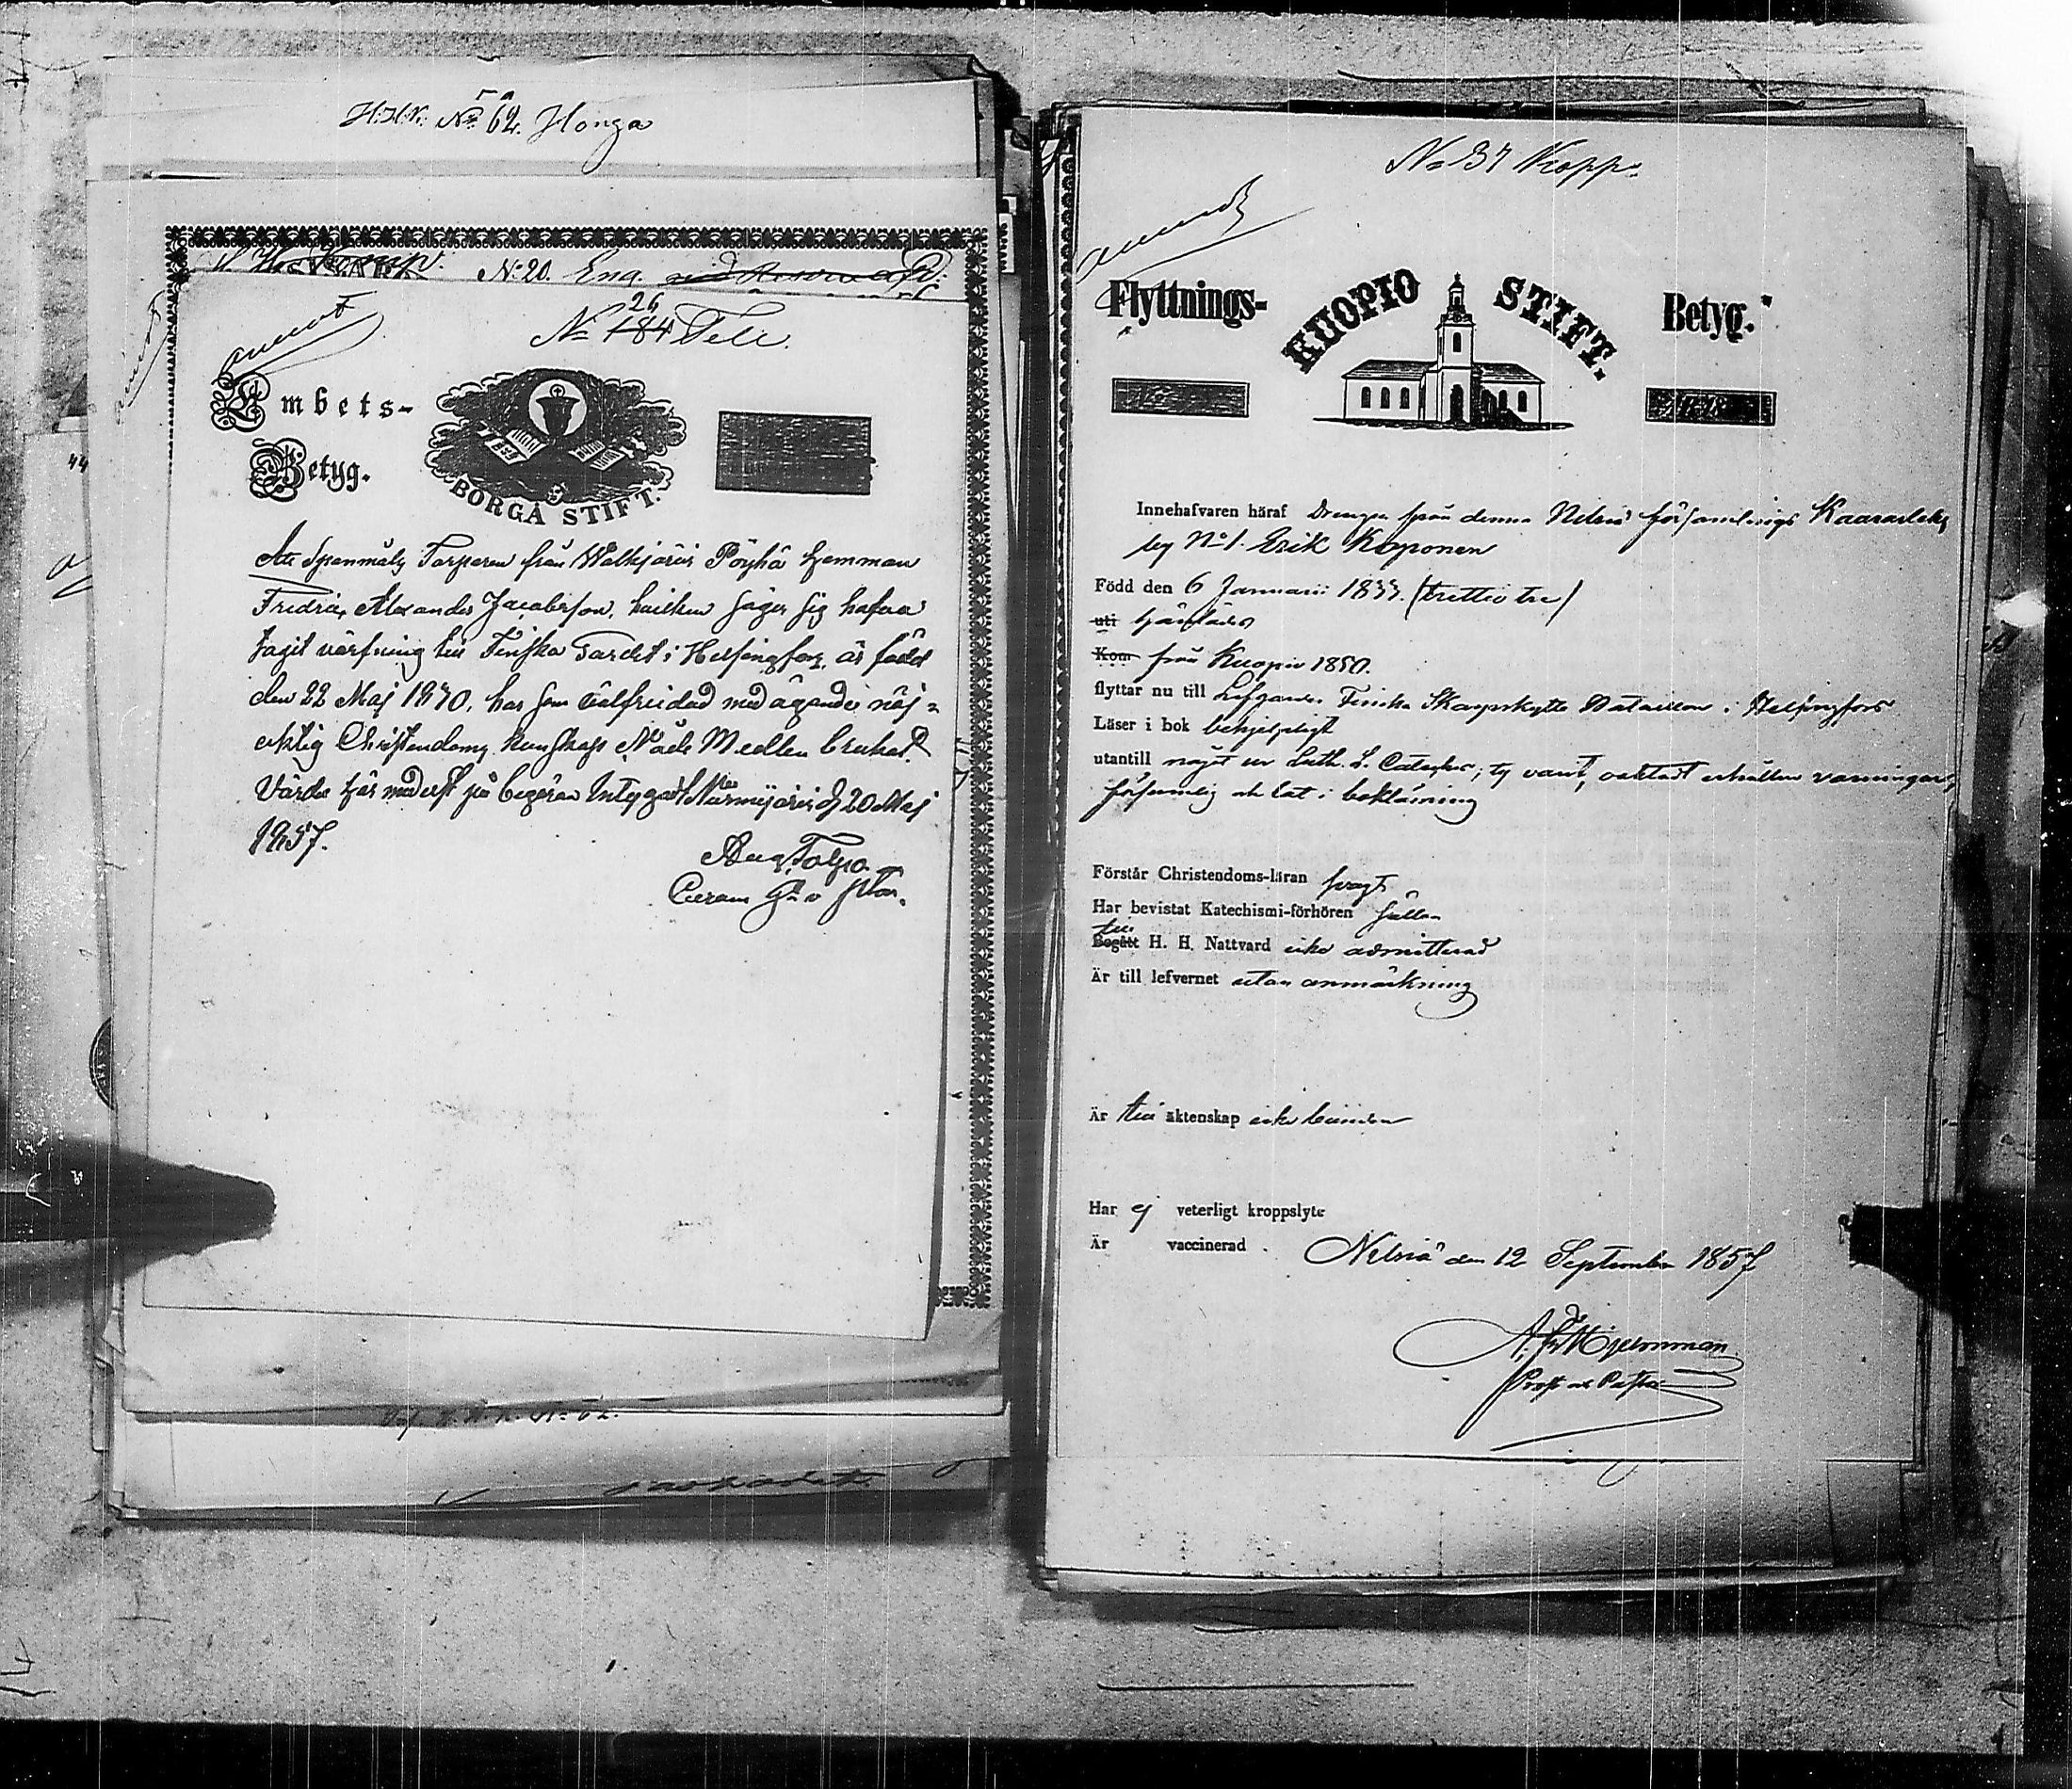 N:o 62. Honga
N:o 20. Enq.
26
N:o 184 Tele.
Embets-
Betyg.
BORGÅ STIFT.
Att Spanmåls Torparen från Walkjärvi Pöyhä hemman
Fredric Alexander Jacobsson, hvilken säger sig hafva
tagit värfning till Finska Gardet i Helsingfors, är född
den 22 Maj 1830, har som välfrejdad med ägande nöj-
aktig Christendoms kunskap Nåde Medlen brukat.
Värder här medelst på begäran Intygadt Nurmijärvi d 20 Maj
1857.
N:o 37 Kopp.
Flyttnings-
KUOPIO STIFT.
Betyg.
Innehafvaren häraf Drengen från denna Nilsiä församlings
N:o 1. Erik Koponen
Född den 6 Januarii 1833. (trettio tre)
uti
Kom från Kuopio 1850.
flyttar nu till Lifgardes Finska Skarpskytte Bataillon i Helsingfors
Läser i bok behjelpligt
utantill något ur Luth. L. Cateches; ty varit, oaktadt erhållen varningar,
försumlig och lat i bokläsning
Förstår Christendoms-läran svagt
Har bevistat Katechismi-förhören sällan
till
Begått H. H. Nattvard icke admitterad
Är till lefvernet utan anmärkning
Är till äktenskap icke bunden
Har ej veterligt kroppslyte
Är vaccinerad.
Nilsiä den 12 September 1857
Prost och Pastor